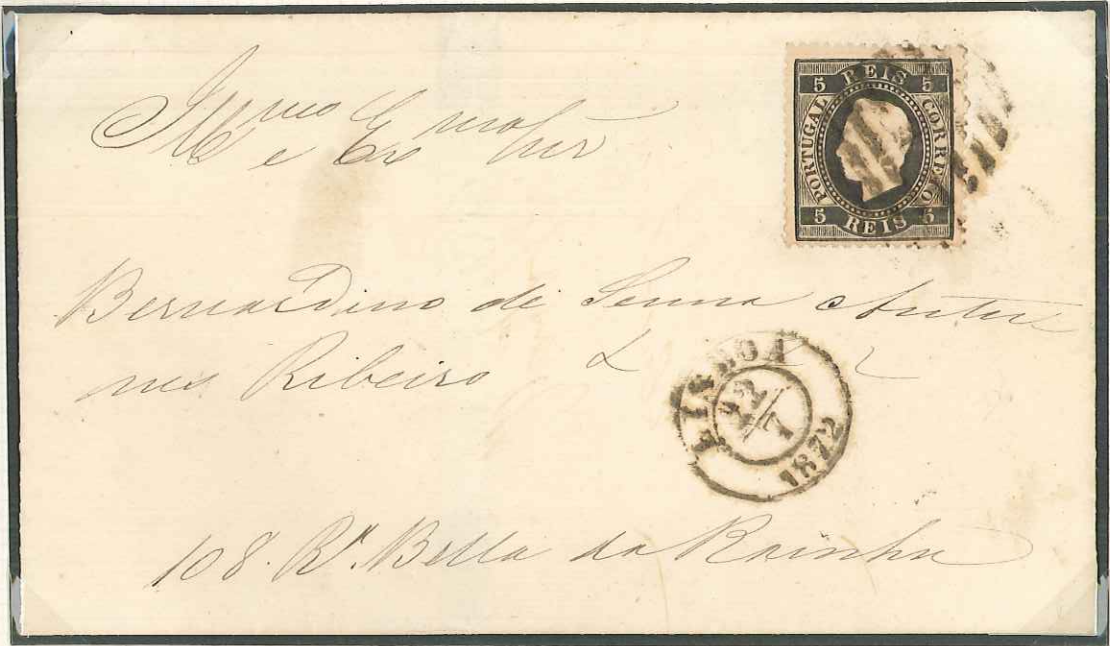 Illmo e Exmo Snr
5 REIS 5
PORTUGAL
CORREIO
5 REIS 5
Bernardino de Senna Antu
nes Ribeiro
LISBOA
22/7
1872
108. Rª Bella da Rainha